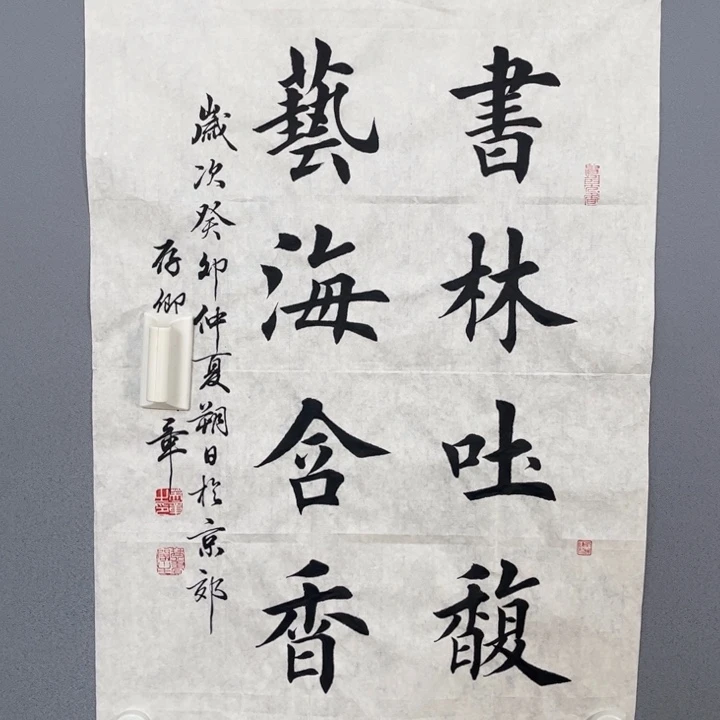 書林吐馥
藝海含香
歲次癸卯仲夏朔日於京郊
存卿
章